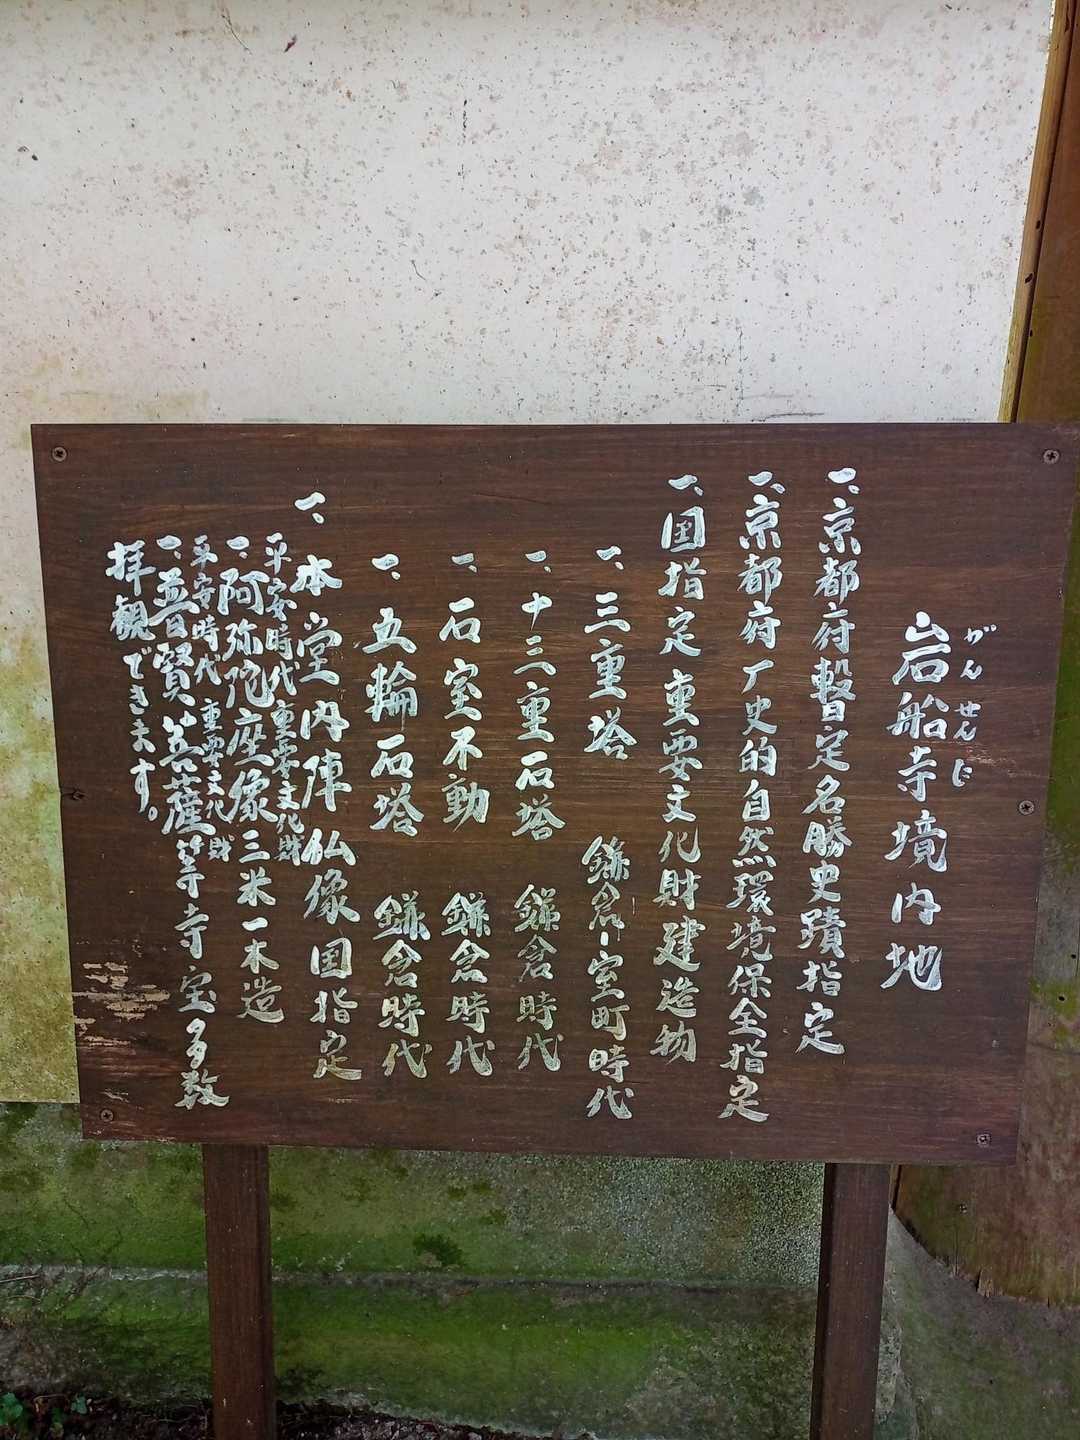 がんせんじ
岩船寺境内地
一、京都府暫定名勝史蹟指定
一、京都府歴史的自然環境保全指定
一、国指定重要文化財建造物
一、三重塔 鎌倉-室町時代
一、十三重石塔 鎌倉時代
一、石室不動 鎌倉時代
一、五輪石塔 鎌倉時代
一、本堂内陣仏像国指定
平安時代 重要文化財
一、阿弥陀座像三米一木造
平安時代 重要文化財
一、普賢菩薩等寺宝多数
拝観できます。